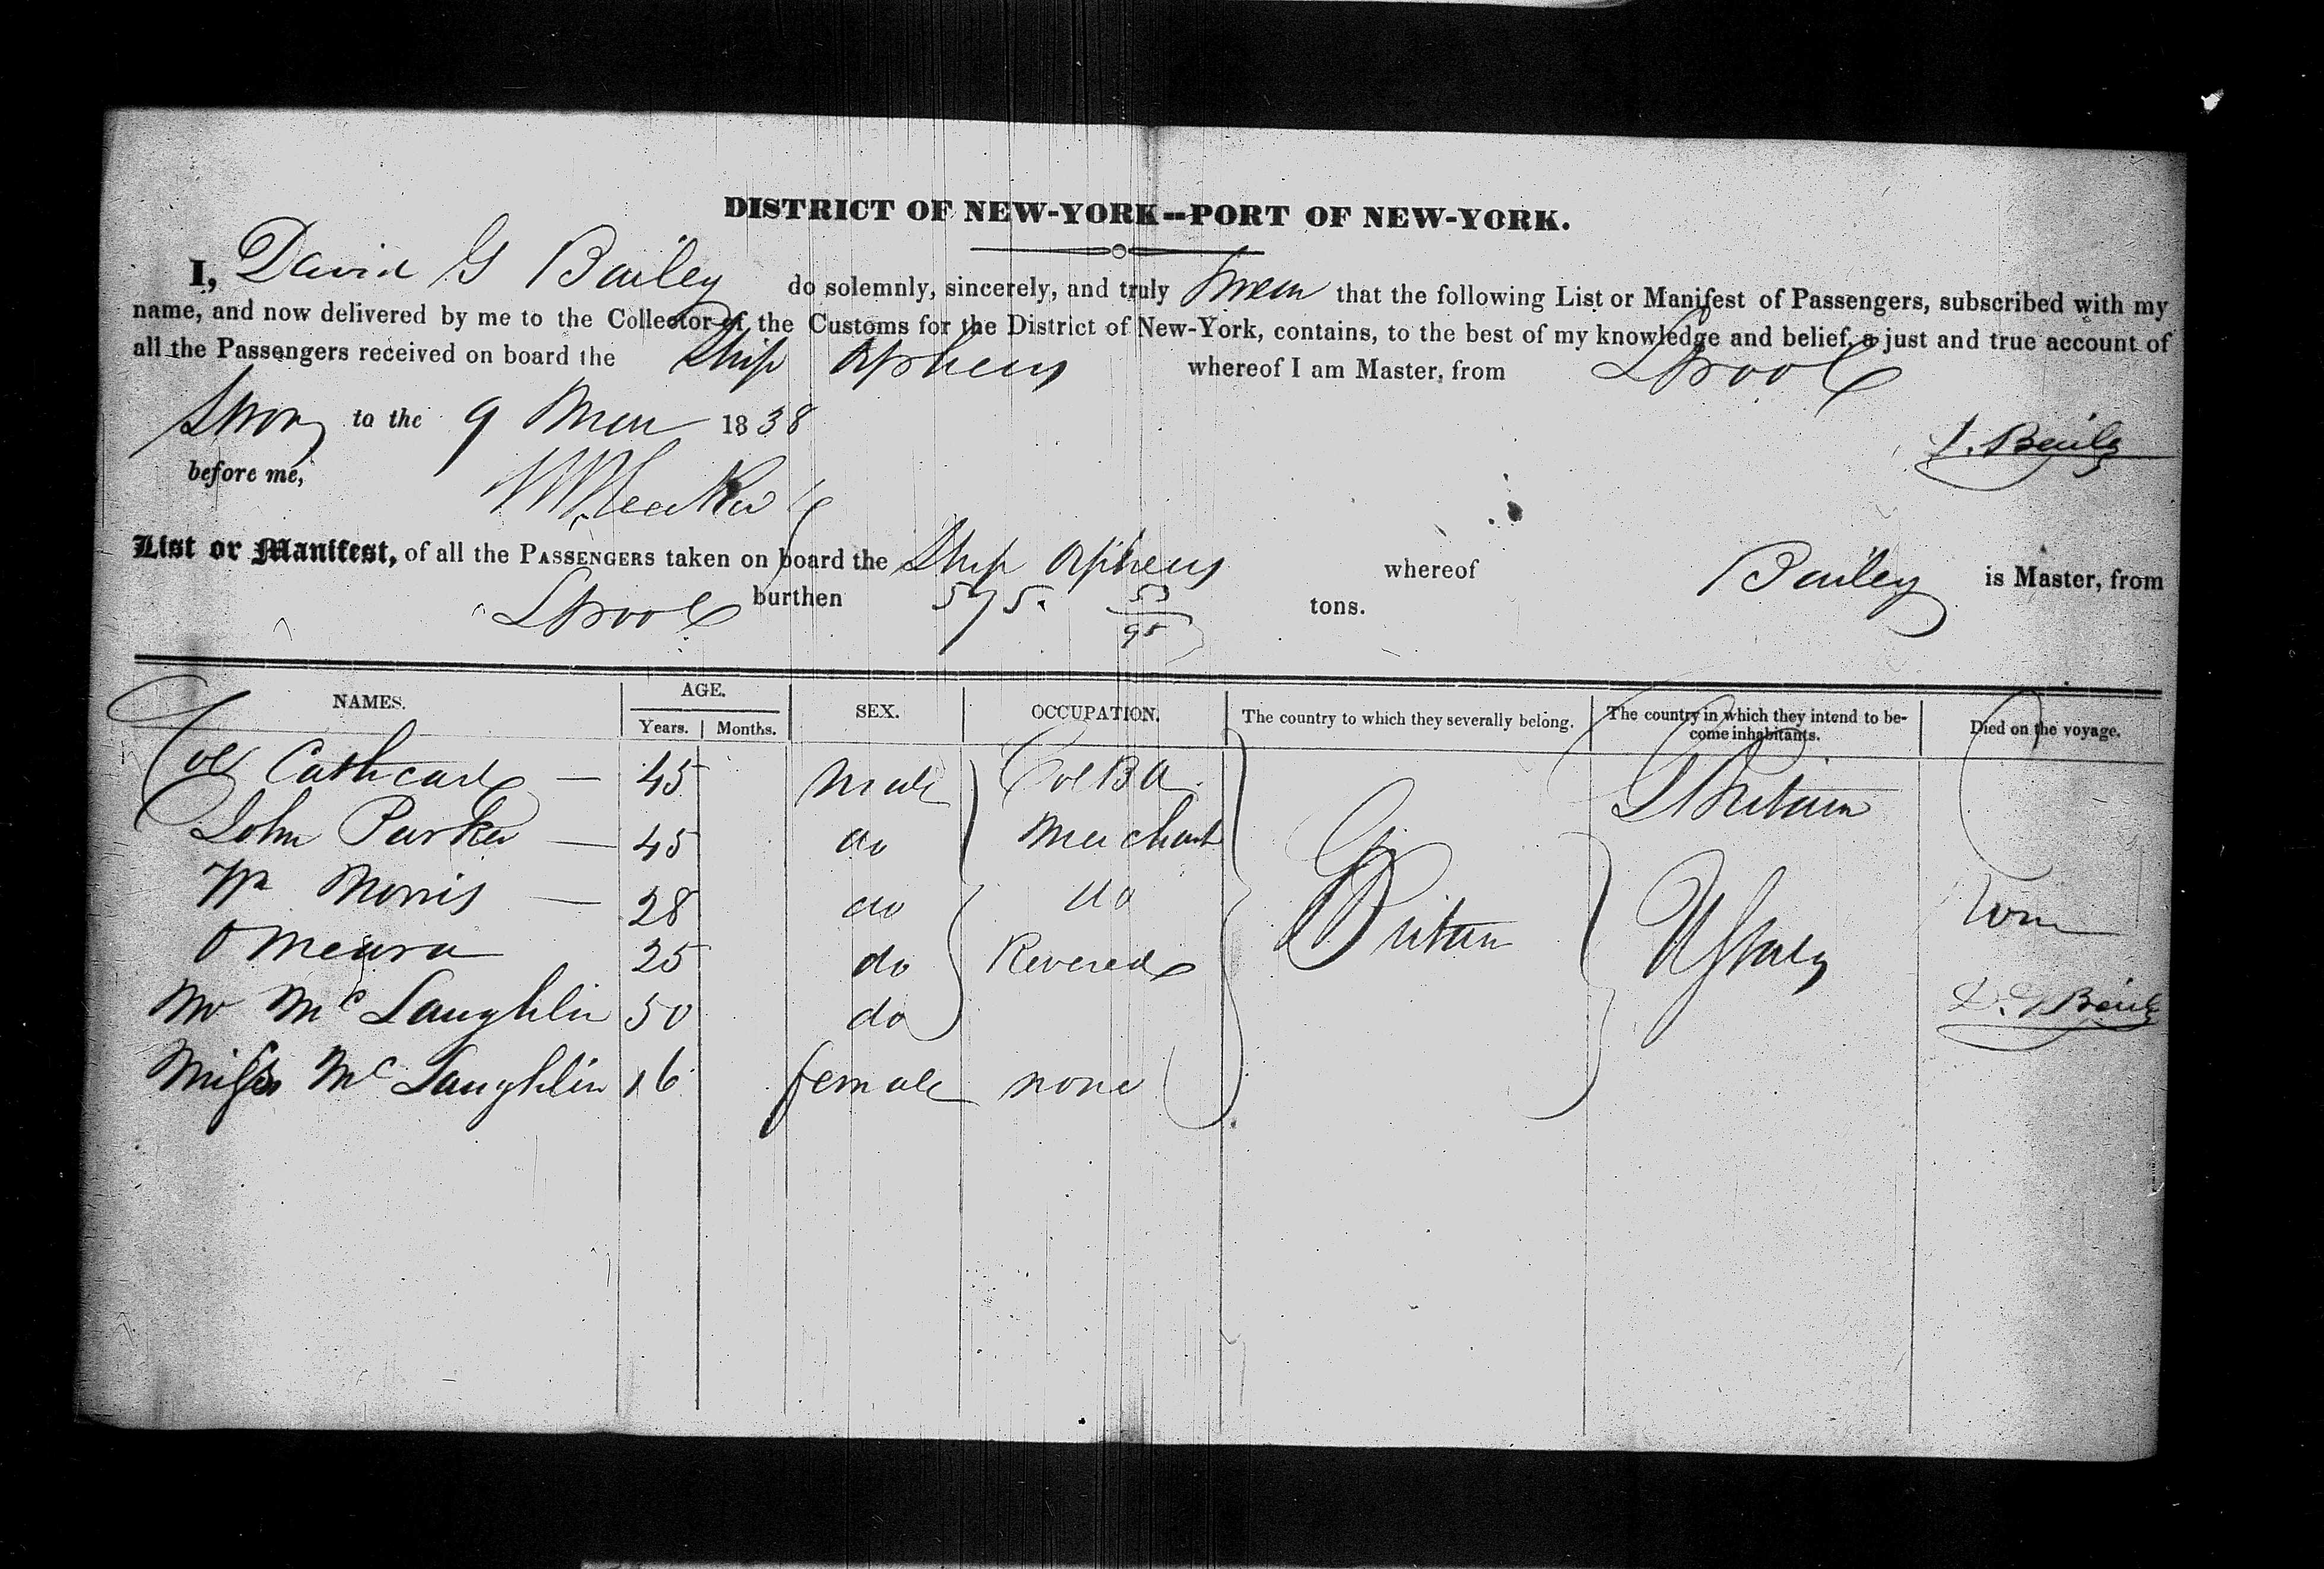 DISTRICT OF NEW-YORK--PORT OF NEW-YORK.
I, David G Bailey do solemnly, sincerely, and truly swear that the following List or Manifest of Passengers, subscribed with my
name, and now delivered by me to the Collector of the Customs for the District of New-York, contains, to the best of my knowledge and belief, a just and true account of
all the Passengers received on board the Ship Orpheus whereof I am Master, from Lpool
Sworn to the 9 Mar 1838
D. G Bailey
before me,
List or Manifest, of all the PASSENGERS taken on board the Ship Orpheus whereof Bailey is Master, from
Lpool burthen 575. 53/95 tons.
NAMES. AGE. SEX. OCCUPATION. The country to which they severally belong. The country in which they intend to be-
Years. Months. come inhabitants. Died on the voyage.
Col Cathcart — 45 male Col BA G Britain
John Parker — 45 do Merchant
Wm Morris — 28 do do G Britain U States None
O Meara 25 do Reverend
Mr McLaughlin 50 do D. G Bailey
Miss McLaughlin 16 female none